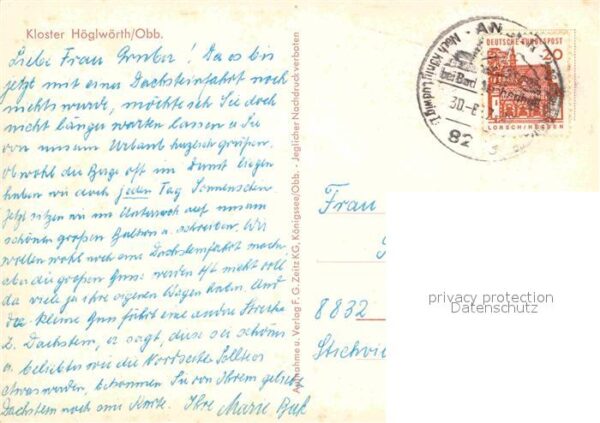 Kloster Höglwörth/Obb.
Liebe Frau Gruber! Da es bis
jetzt mit einer Dachsteinfahrt noch
nichts wurde, möchte ich Sie doch
nicht länger warten lassen u Sie
von unsem Urlaub herzlich grüßen.
Obwohl die Berge oft im Dunst liegen
haben wir doch jeden Tag Sonnenschein
Jetzt sitzen wir im auf unsem
schönen großen Balkon u. schreiben. Wir
wollen wohl noch eine Dachsteinfahrt machen
aber die großen werden oft nicht voll,
da viele ja ihre eigenen Wagen haben. Und
der kleine fährt eine andre Strecke
z. Dachstein, er sagt, diese sei schöner
u. beliebter wie die Nordseite. Sollte
etwas werden, bekommen Sie von Ihrem geliebten
Dachstein noch eine Karte. Ihre Marie
Aufnahme u. Verlag F. G. Zeitz KG, Königssee/Obb. - Jeglicher Nachdruck verboten
AN
Nach König Ludwig I.
bei Bad
30.-8
82
DEUTSCHE BUNDESPOST
20
LORSCH/HESSEN
Frau
8832
privacy protection
Datenschutz